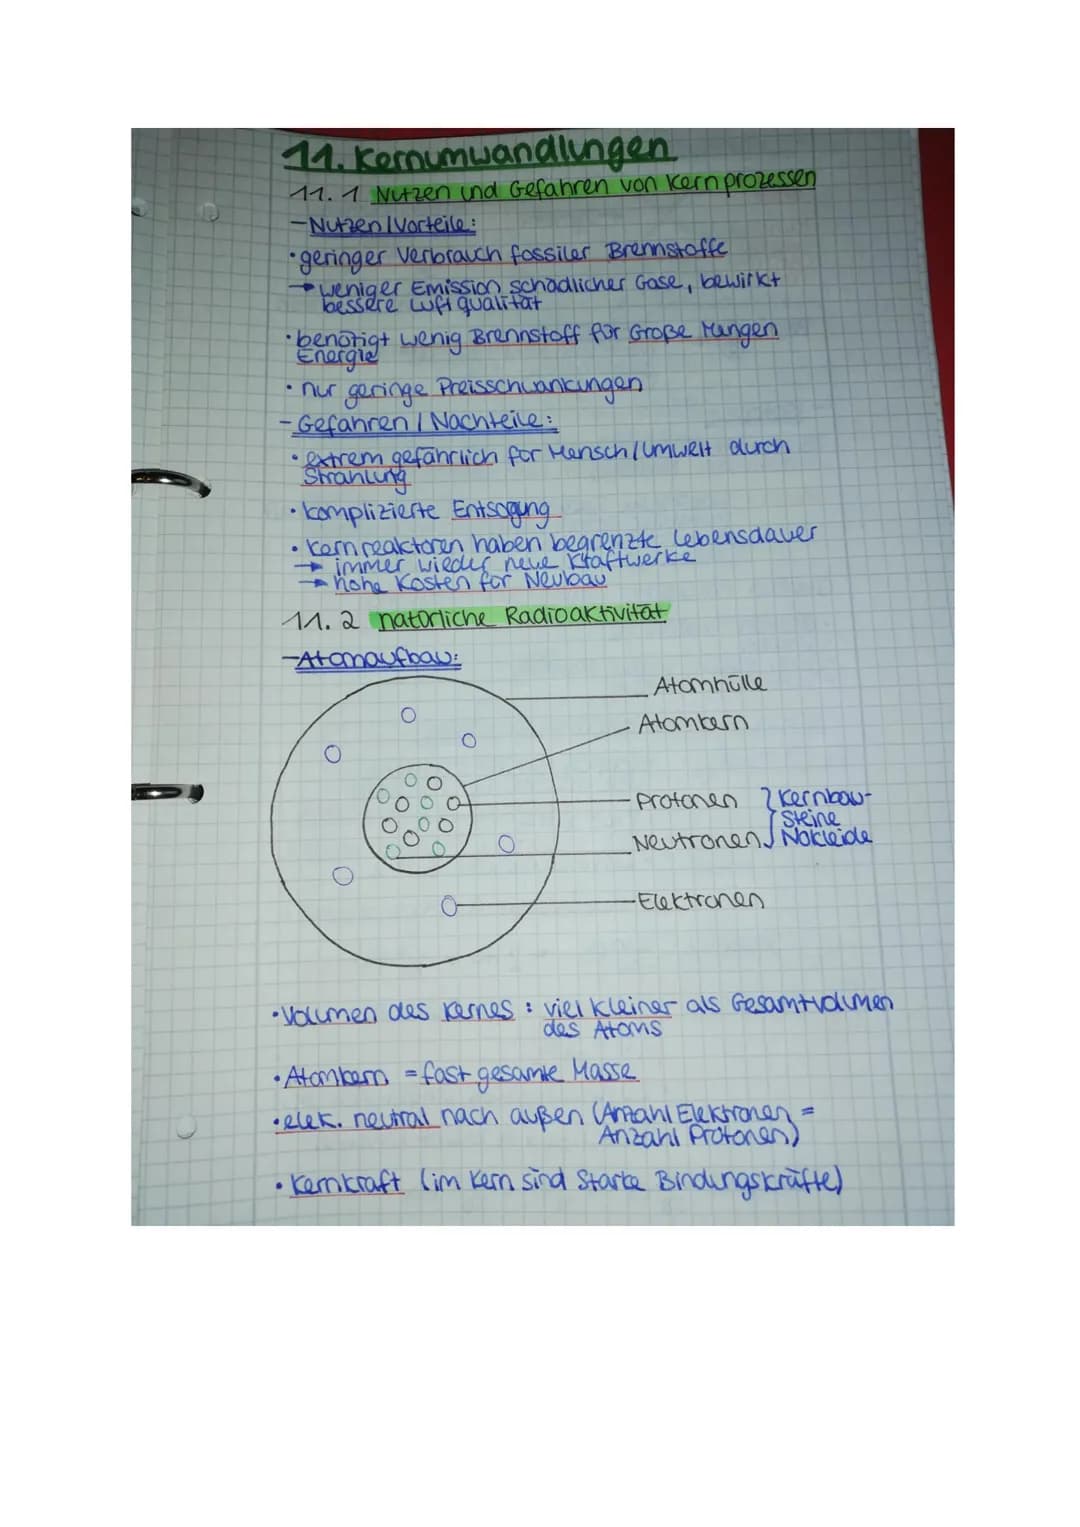 11. Kernumwandlungen
11. 1 Nutzen und Gefahren von Kernprozessen
- Nutzen / Vorteile:
· geringer Verbrauch fossiler Brennstoffe
→ weniger Emission schädlicher Gase, bewirkt
bessere Luftqualität
· benötigt wenig Brennstoff für Große Mengen
Energie
· nur geringe Preisschwankungen
- Gefahren / Nachteile:
· extrem gefährlich für Mensch / Umwelt durch
Strahlung
· komplizierte Entsogung
· Kernreaktoren haben begrenzte Lebensdauer
→ immer wieder neue Kraftwerke
→ hohe Kosten für Neubau
11. 2 natürliche Radioaktivität
- Atomaufbau:
Atomhülle
Atomkern
Protonen } Kernbau-
steine
Neutronen Nukleide
Elektronen
· Volumen des Kernes : viel kleiner als Gesamtvolumen
des Atoms
· Atomkern = fast gesamte Masse
· elek. neutral nach außen (Anzahl Elektronen =
Anzahl Protonen)
· Kernkraft (im Kern sind starke Bindungskräfte)